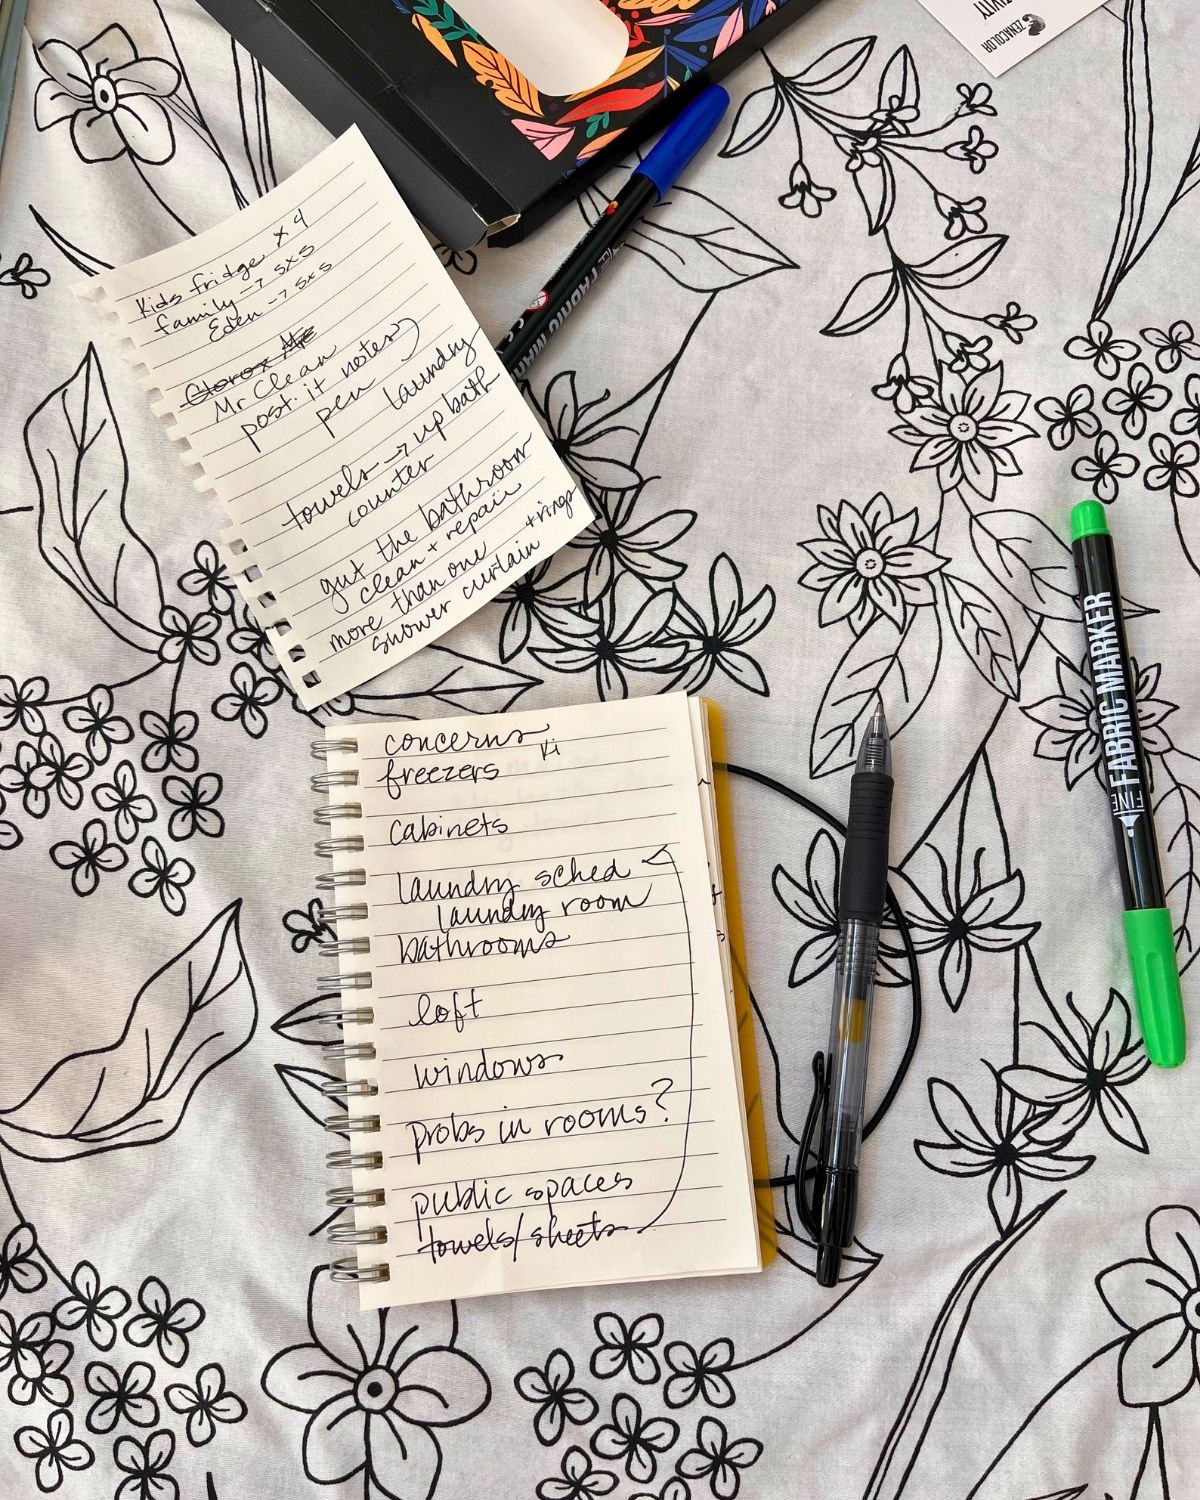 Kids fridge x 4
family → 5x5
Eden → 5x5
Clorox Mr
Mr Clean
post it notes
pen
laundry
towels → up bath
counter
gut the bathroom
clean + repair
more than one
shower curtain + rings
concerns
freezers
cabinets
laundry sched
laundry room
bathrooms
loft
windows
probs in rooms?
public spaces
towels/sheets
FINE FABRIC MARKER
ZENACOLOR